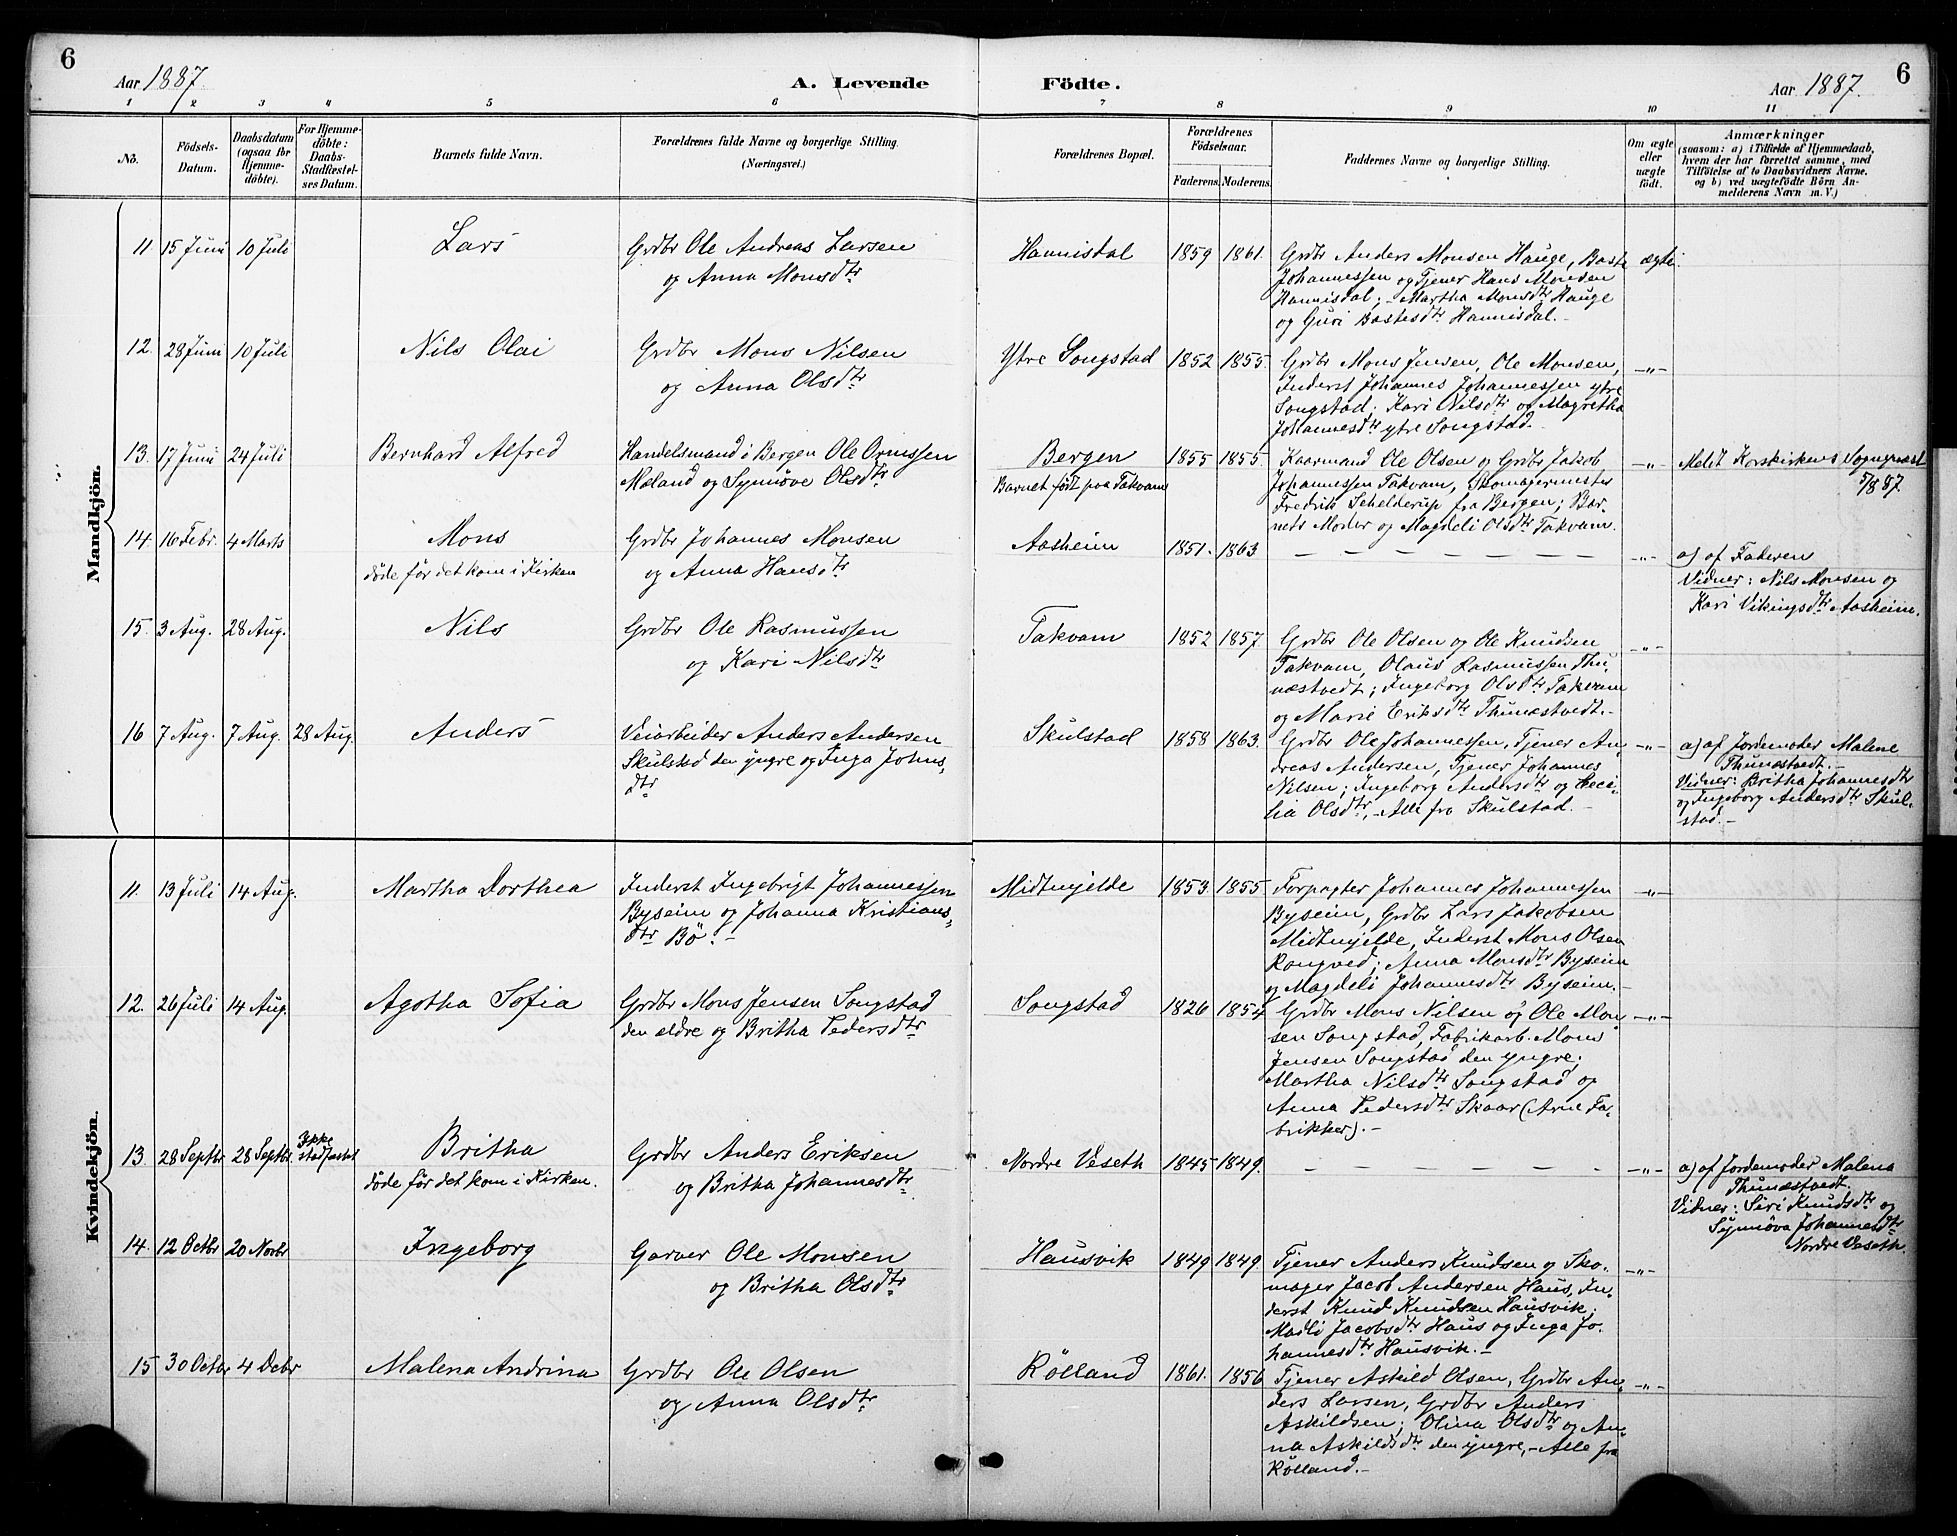 6
Aar 1887.
A. Levende Födte.
Aar 1887.
6
1 2 3 4 5 6 7 8 9 10 11
No.
Födsels-Datum.
Daabsdatum (ogsaa for Hjemme-döbte).
For Hjemme-döbte: Daabs-Stadfæstel-ses Datum.
Barnets fulde Navn.
Forældrenes fulde Navne og borgerlige Stilling. (Næringsvei.)
Forældrenes Bopæl.
Forældrenes Födselsaar.
Faderens. Moderens.
Faddernes Navne og borgerlige Stilling.
Om ægte eller uægte födt.
Anmærkninger
(saasom: a) i Tilfælde af Hjemmedaab,
hvem der har forrettet samme, med
Tilföielse af to Daabsvidners Navne,
og b) ved uægtefödte Börn An-
melderens Navn m. V.)
Mandkjön.
11. 15 Juni 10 Juli Lars Grdbr Ole Andreas Larsen
og Anna Monsdtr
Hannisdal 1859 1861. Grdbr Anders Monsen Hauge, Baste ægte.
Johannessen og Tjener Hans Monsen
Hannisdal; - Martha Monsdtr Hauge
og Guri Bastesdtr Hannisdal. -
12. 28 Juni 10 Juli Nils Olai Grdbr Mons Nilsen
og Anna Olsdtr
Ytre Songstad 1852 1855. Grdbr Mons Jensen, Ole Monsen, -"-
Inderst Johannes Johannessen ytre
Songstad; Kari Nilsdtr og Magretha
Johannesdtr ytre Songstad. -
13. 17 Juni 24 Juli Bernhard Alfred Handelsmand i Bergen Ole Ormssen
Mæland og Synnöve Olsdtr
Bergen 1855 1855. Kaarmand Ole Olsen og Grdbr Jakob -"- Meldt Korskirkens Sognepræst
Barnet født paa Takvam Johannessen Takvam, Skomagermester 5/8 87.
Fredrik Schelderup fra Bergen; Bar-
nets Moder og Magdeli Olsdtr Takvam.
14. 16 Febr. 4 Marts Mons Grdbr Johannes Monsen
døde før det kom i Kirken og Anna Hansdtr
Aasheim 1851. 1863 - - - - - - - -"- a) af Faderen
Vidner: Nils Monsen og
Kari Vikingsdtr Aasheim.
15. 3 Aug. 28 Aug. Nils Grdbr Ole Rasmussen
og Kari Nilsdtr
Takvam 1852 1857. Grdbr Ole Olsen og Ole Knudsen -"-
Takvam, Olaus Rasmussen Thu-
næstvedt; Ingeborg Olsdtr Takvam
og Marie Eriksdtr Thunæstvedt. -
16 7 Aug. 7 Aug. 28 Aug. Anders Veiarbeider Anders Andersen
Skulstad den yngre og Inga Johns-
dtr
Skulstad 1858 1863. Grdbr Ole Johannessen, Tjener An- -"- a) af Jordemoder Malene
dreas Andersen, Tjener Johannes Thunæstvedt. -
Nilsen; Ingeborg Andersdtr og Ceci- Vidner: Britha Johannesdtr
lia Olsdtr, - Alle fra Skulstad. - og Ingeborg Andersdtr Skul-
stad. -
Kvindekjön.
11. 13 Juli 14 Aug. Martha Dorthea Inderst Ingebrigt Johannessen
Byseim og Johanna Kristians-
dtr Bö. -
Midtmjelde 1853. 1855. Forpagter Johannes Johannessen -"-
Byseim, Grdbr Lars Jakobsen
Midtmjelde, Inderst Mons Olsen
Rongved; Anna Monsdtr Byseim
og Magdeli Johannesdtr Byseim. -
12. 26 Juli 14 Aug. Agotha Sofia Grdbr Mons Jensen Songstad
den ældre og Britha Pedersdtr
Songstad 1826 1854 Grdbr Mons Nilsen og Ole Mon- -"-
sen Songstad, Fabrikarb. Mons
Jensen Songstad den yngre;
Martha Nilsdtr Songstad og
Anna Pedersdtr Skaar (Arne Fa-
brikker). -
13. 28 Septbr 28 Septbr Ikke stadfæstet Britha Grdbr Anders Eriksen
døde før det kom i Kirken. og Britha Johannesdtr
Nordre Veseth 1845 1849. - - - - - - - -"- a) af Jordemoder Malena
Thunæstvedt.
Vidner: Siri Knudsdtr og
Synnöva Johannesdtr
Nordre Veseth.
14. 12 Octbr 20 Novbr Ingeborg Garver Ole Monsen
og Britha Olsdtr
Hausvik 1849 1849. Tjener Anders Knudsen og Sko- -"-
mager Jacob Andersen Haus, In-
derst Knud Knudsen Hausvik;
Madli Jacobsdtr Haus og Inga Jo-
hannesdtr Hausvik. -
15 30 Octbr 4 Decbr Malena Andrina Grdbr Ole Olsen
og Anna Olsdtr
Rölland 1861. 1856 Tjener Askild Olsen, Grdbr An- -"-
ders Larsen, Grdbr Anders
Askildsen; Olina Olsdtr og An-
na Askildsdtr den yngre, - Alle fra
Rölland. -